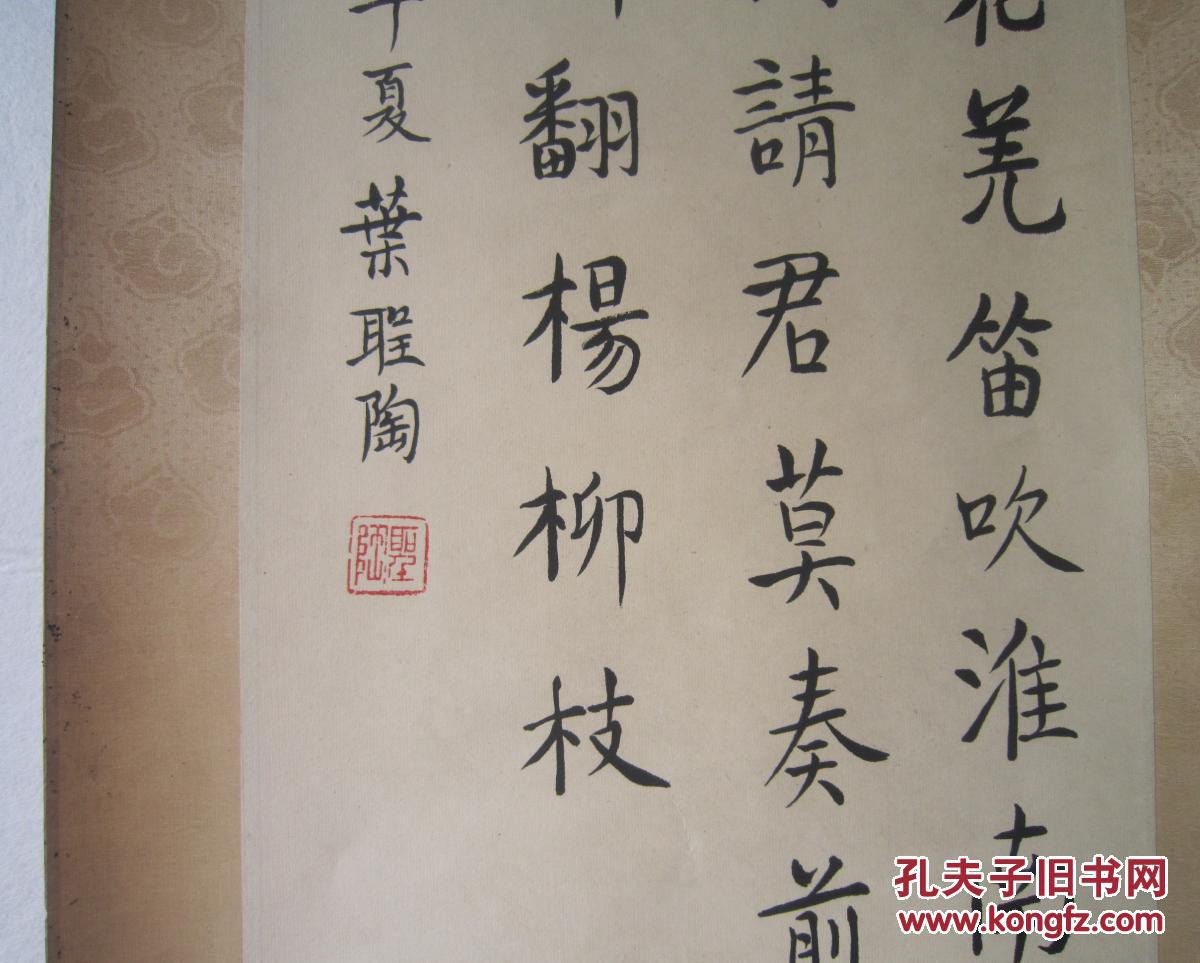 花羌笛吹淮南
請君莫奏前
翻楊柳枝
夏葉聖陶
聖陶
孔夫子旧书网
www.kongfz.com